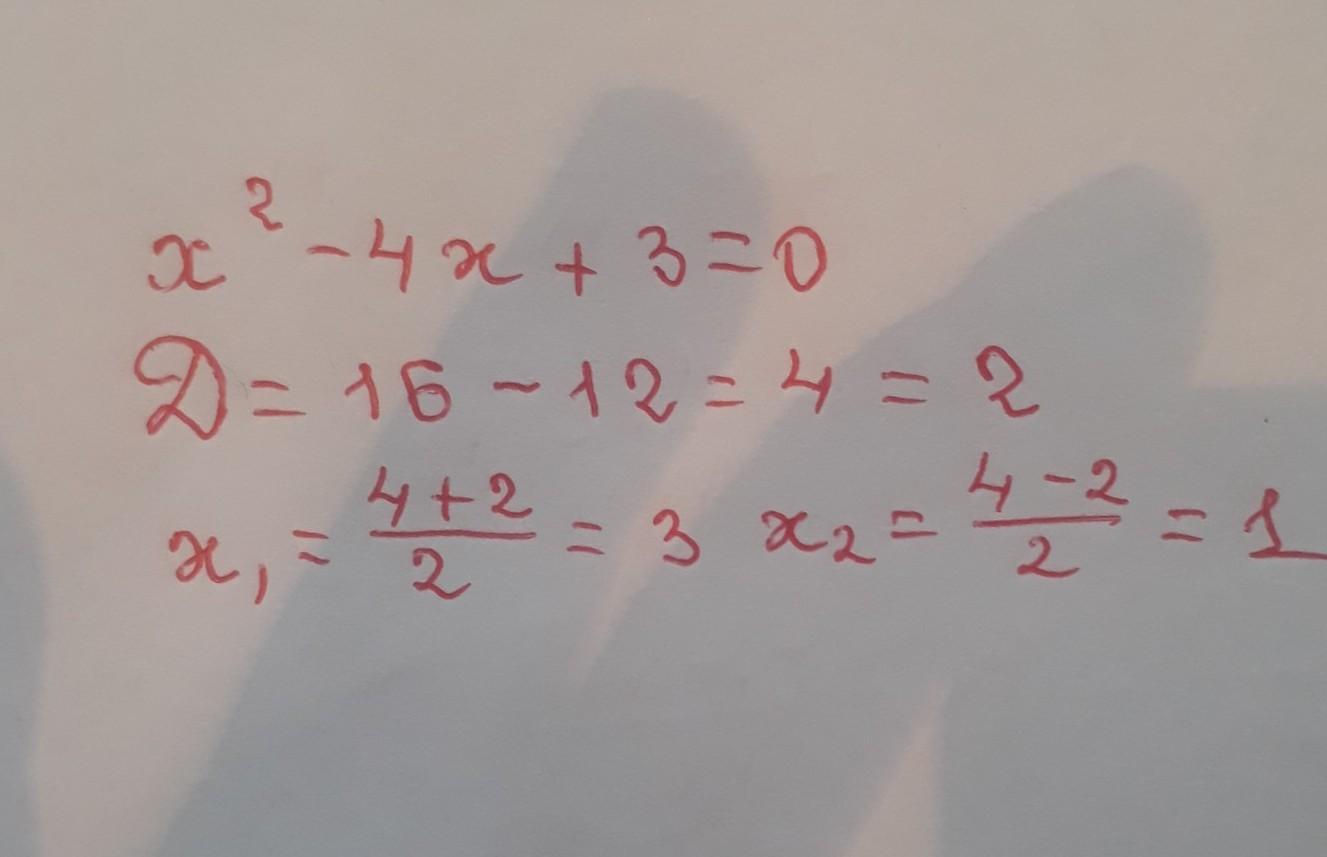 x² - 4x + 3 = 0
D = 16 - 12 = 4 = 2
x₁ = (4 + 2)/2 = 3 x₂ = (4 - 2)/2 = 1